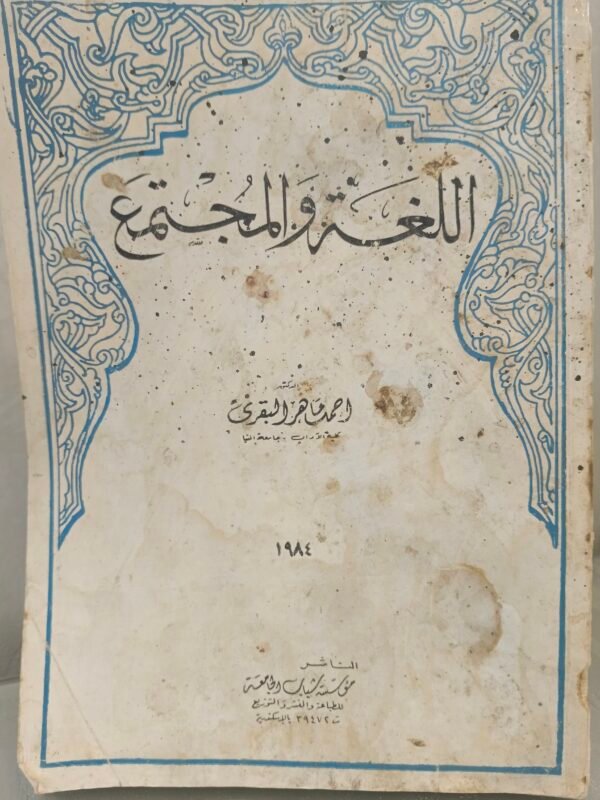 اللغة والمجتمع
الدكتور
احمد ماهر البقرى
كلية الآداب - جامعة المنيا
١٩٨٤
الناشر
مؤسسة شباب الجامعة
للطباعة والنشر والتوزيع
ت ٣٩٤٧٢ بالإسكندرية